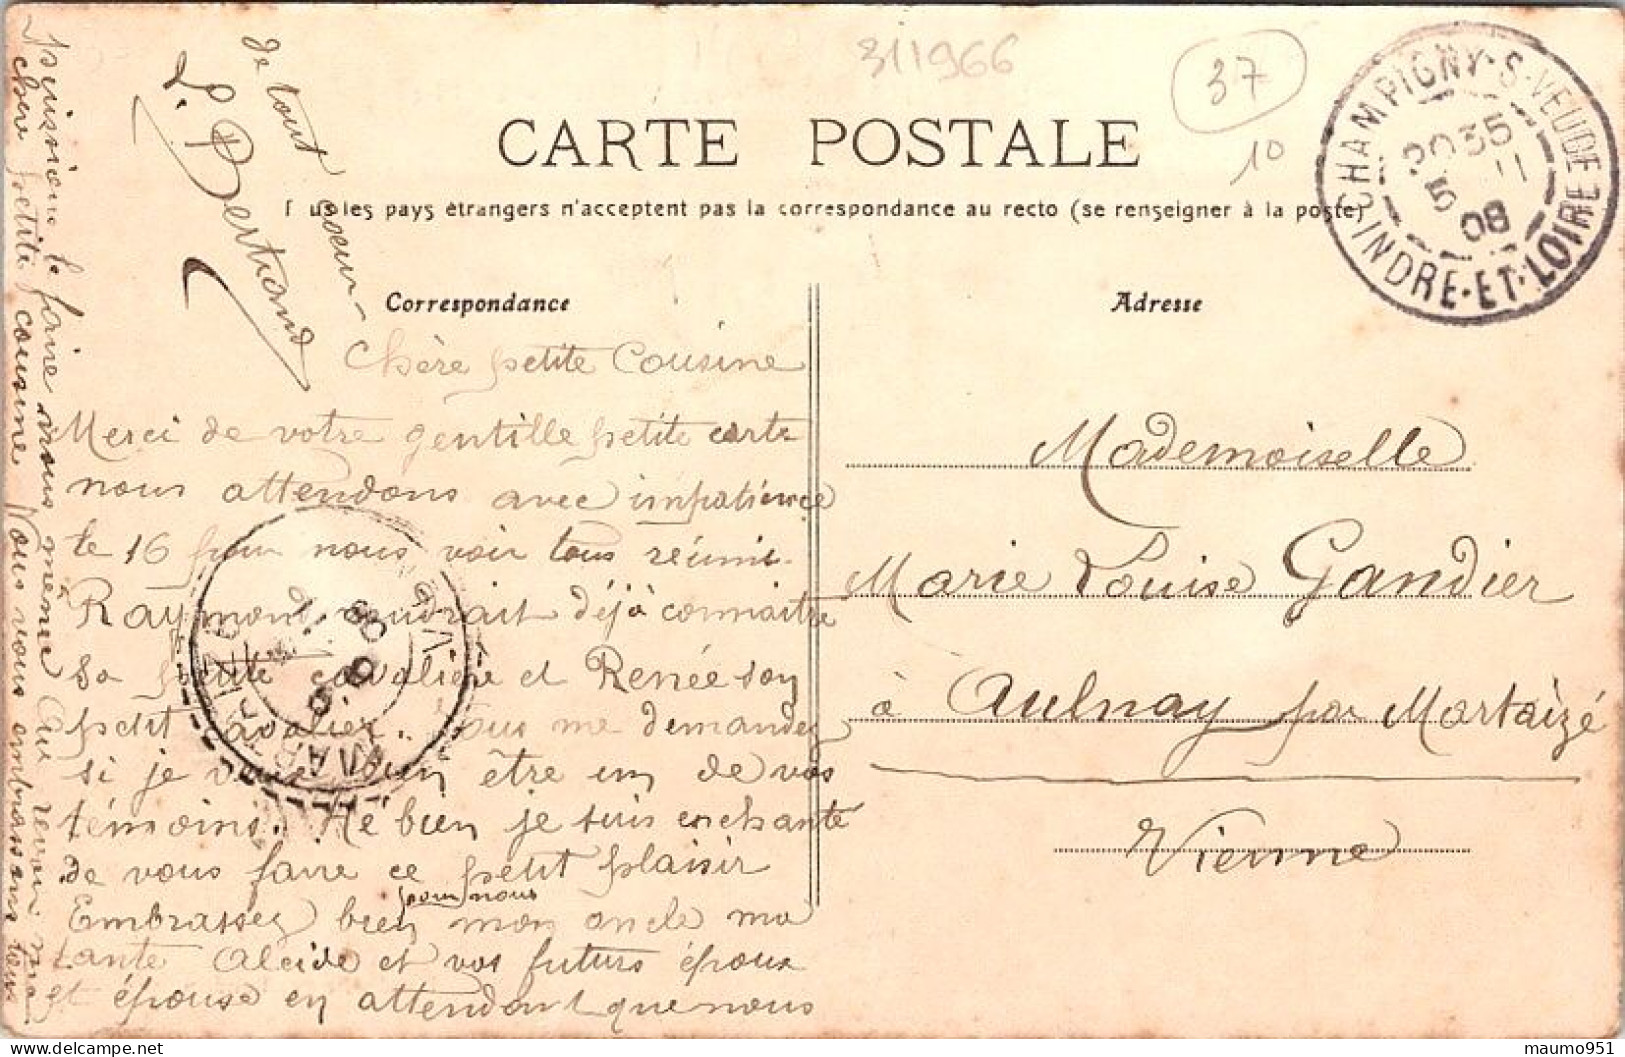 311966
37
10
CARTE POSTALE
us les pays étrangers n'acceptent pas la correspondance au recto (se renseigner à la poste)
CHAMPIGNY-S-VEUDE
20 35
5 11
08
INDRE-ET-LOIRE
Correspondance
Adresse
Chère petite Cousine
Merci de votre gentille petite carte
nous attendons avec impatience
le 16 pour nous voir tous réunis.
Raymond voudrait déjà connaitre
sa petite cavalière et Renée son
petit cavalier. Vous me demandez
si je veux bien être un de vos
témoins. Hé bien je suis enchanté
de vous faire ce petit plaisir
pour nous
Embrassez bien mon oncle ma
tante Alcide et vos futurs époux
et épouse en attendant que nous
puissions le faire nous même Au revoir ma
chère petite cousine Nous vous embrassons tous
de tout coeur
L. Bertrand
MARTAIZÉ
Mademoiselle
Marie Louise Gandier
à Aulnay par Martaizé
Vienne
maumo951